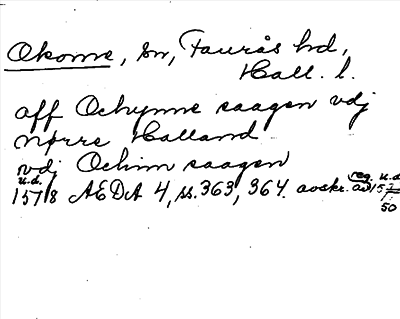 Okome, sn, Faurås hd,
Hall. l.
aff Ochynne saagen vdj
nørre Halland
vdj Ochim saagen
u.d.
1578 ÆDA 4, ss. 363, 364. avskr. av
reg. u.d.
50